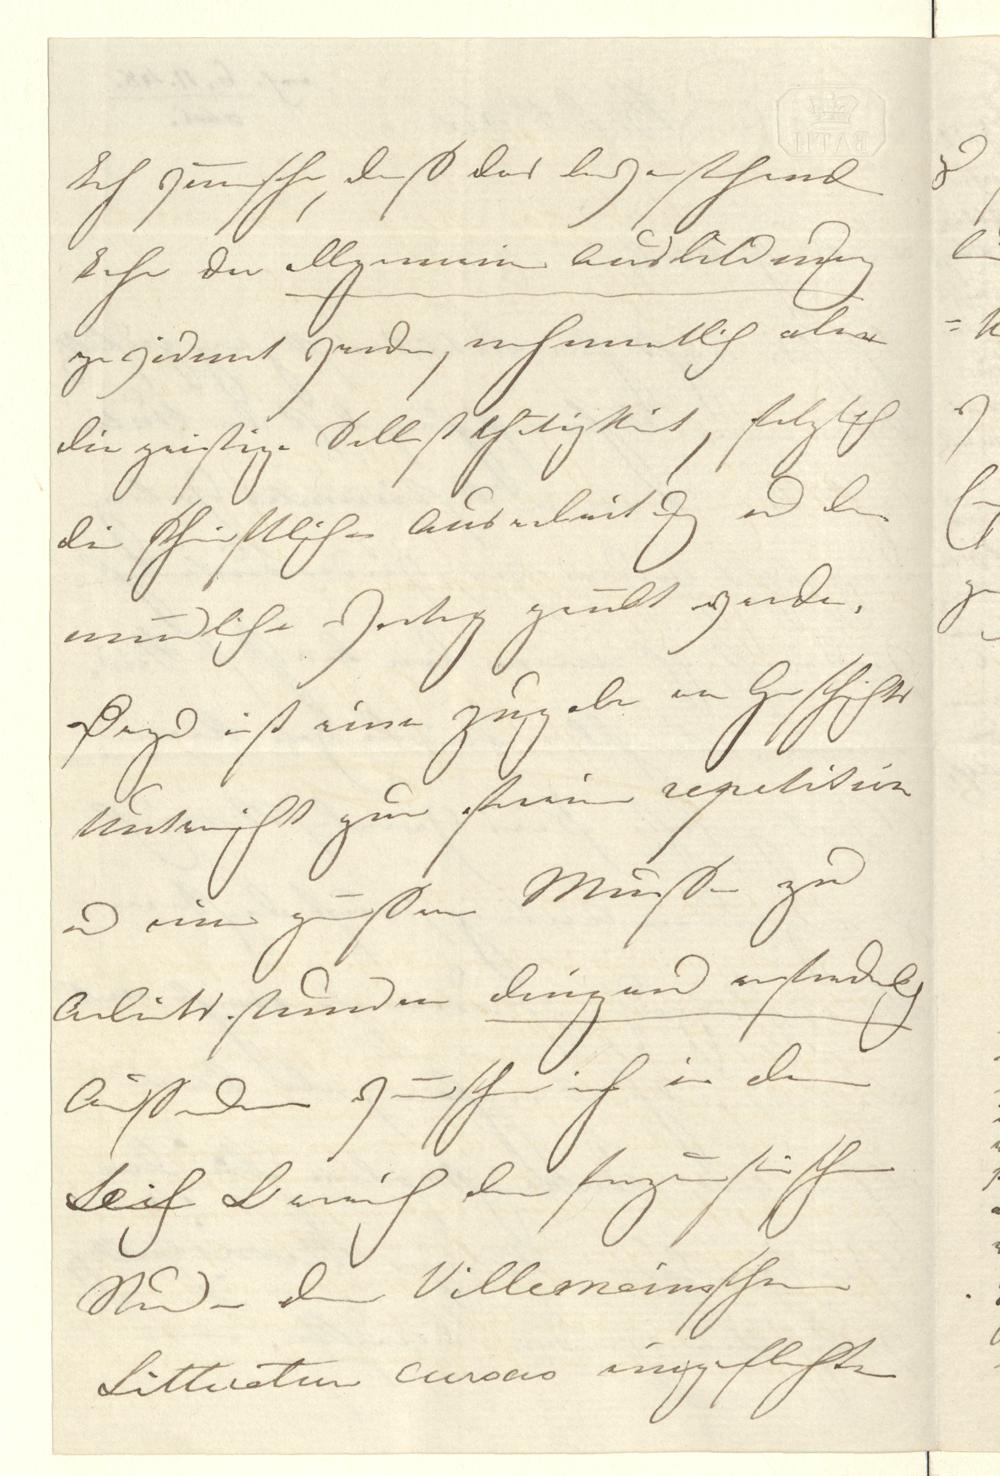 BATH
Ich wünsche, daß das bevorstehende
Jahr der allgemeinen Ausbildung
gewidmet werde, nahmentlich aber
die geistige Selbstthätigkeit, folglich
die schriftlichen Ausarbeitung und der
mündliche Vortrag geübt werde.
Dazu ist eine Zugabe an Geschichts
Unterricht zur freien repetition
und eine größere Muße zu
Arbeitsstunden dringend erforderlich
Außerdem wünsche ich in dem
der französischen
Stunden den Villemainschen
Litteratur cursus eingeflochten